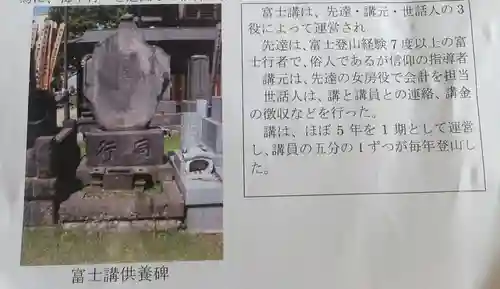 富士講は、先達・講元・世話人の３
役によって運営され
先達は、富士登山経験７度以上の富
士行者で、俗人であるが信仰の指導者
講元は、先達の女房役で会計を担当
世話人は、講と講員との連絡、講金
の徴収などを行った。
講は、ほぼ５年を１期として運営
し、講員の五分の１ずつが毎年登山し
た。
行同
富士講供養碑